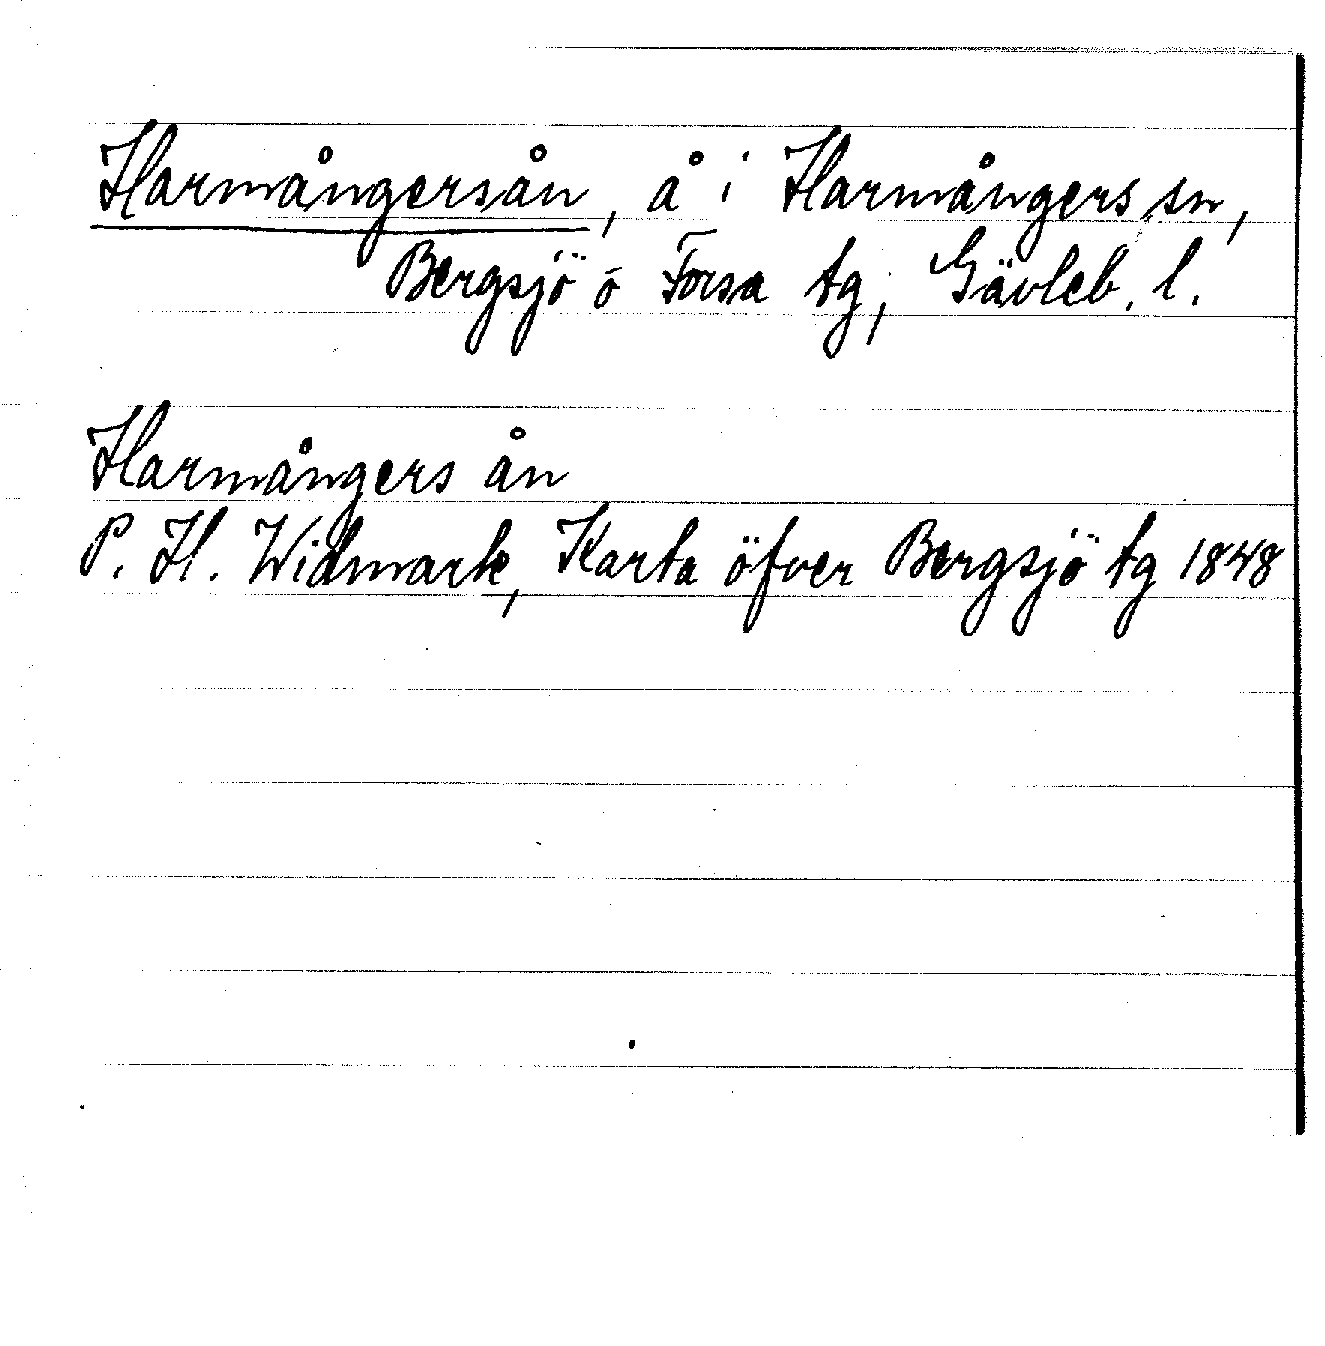 Harmångersån, å i Harmångers sn,
Bergsjö o Forsa tg, Gävleb. l.
Harmångers ån
P. H. Widmark, Karta öfver Bergsjö tg 1848